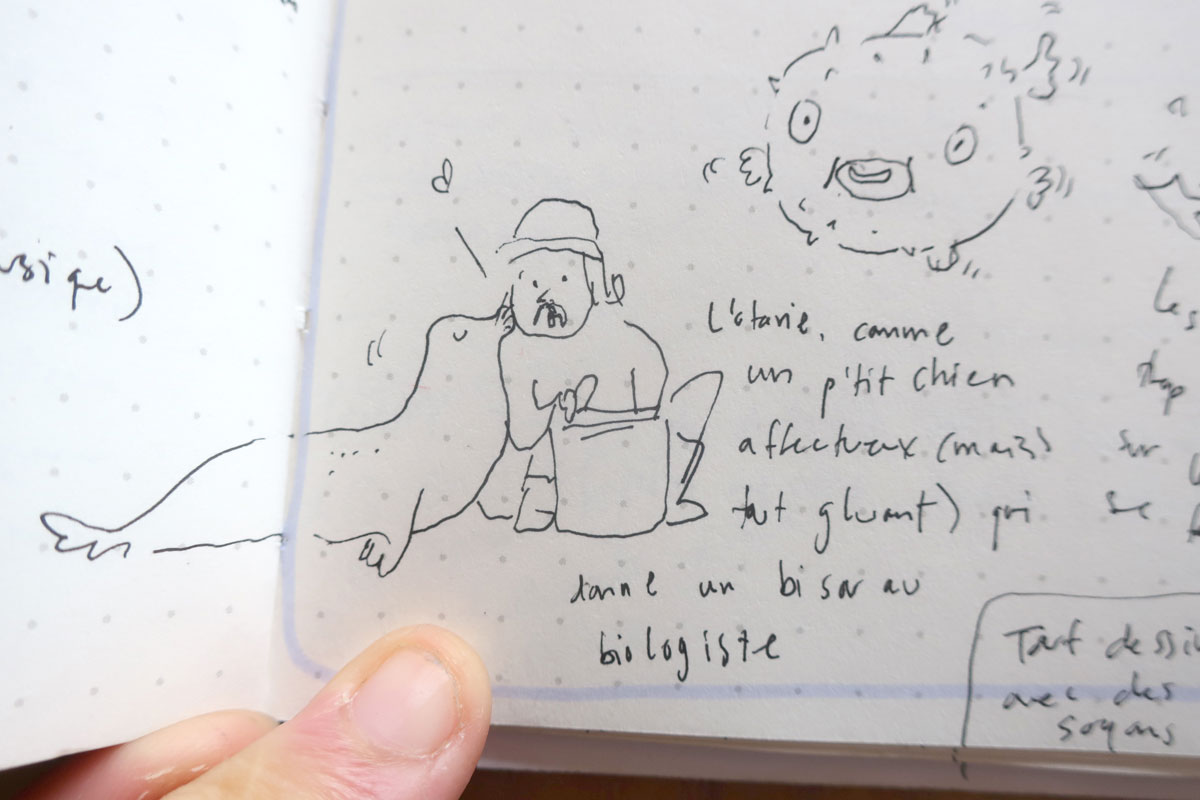 usique)
L'otarie, comme
un p'tit chien
affectueux (mais
tout gluant) qui
donne un bisou au
biologiste
Les
trop
sur
se
Tout dessi
avec des